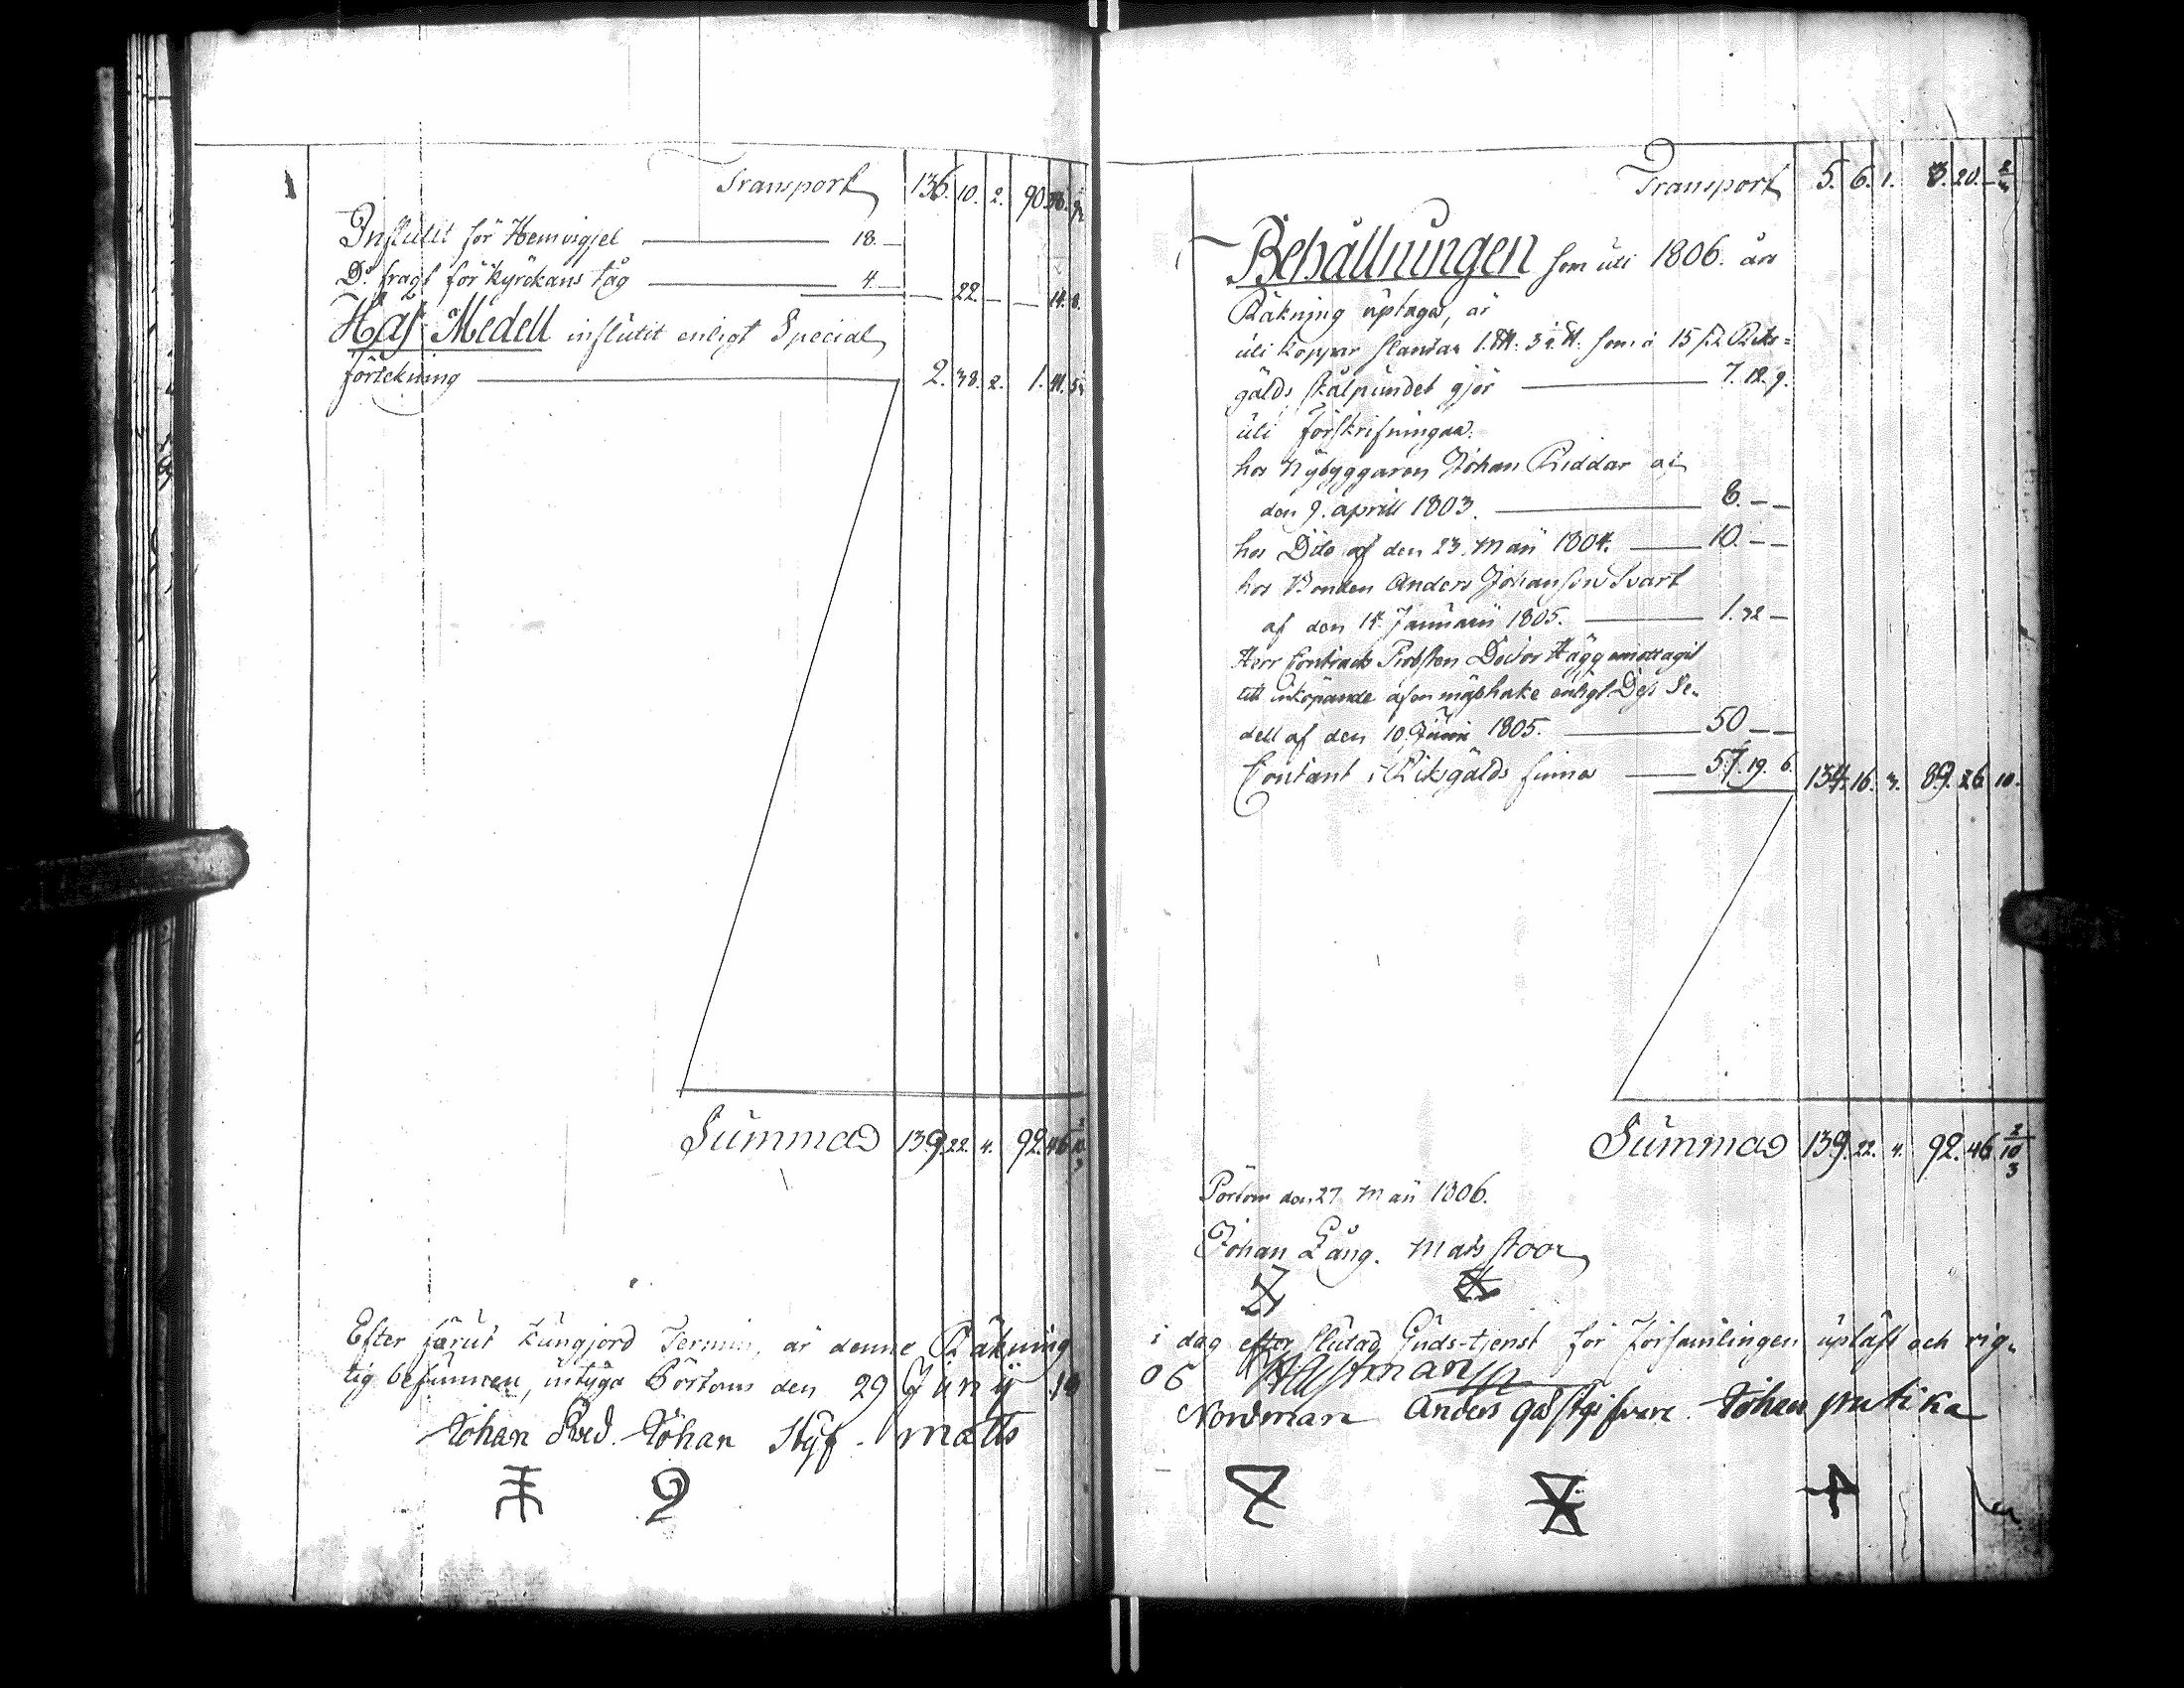 Transport 136. 10. 2. 90.
Influtit för Hemvigsel 18. —
Do. fragt för kyrckans tåg 4. — — 22. — — 14. 8.
Håf-Medell influtit enligt Special
förtekning 2. 38. 2. 1. 41.
Summa 139. 22. 4. 92. 46
Efter förut kungjord Termin, är denne Räkning
tig befunnen, intyga Pörtom den 29 Junÿ 18
Johan Johan Styf. matts
Transport 5. 6. 1. 3. 20.
Behållningen som uti 1806. års
Räkning uptages, är
uti koppar slantar
gälds skålpundet gjör 7. 12. 9.
uti Förskrifningar.
hos Nybyggaren Johan Riddar af
den 9. aprill 1803. 8. — —
hos Dito af den 23. Maii 1804. 10. — —
hos Bonden Anders Johansson Svart
af den 14. Januarii 1805. 1. 32 —
Herr Contracts Probsten Doctor Hägg emottagit
till inköpande af en mässhake enligt Dess Se-
dell af den 10. Junii 1805. 50 — —
Contant i Riksgälds summa 57. 19. 6. 134. 16. 3. 89. 26. 10.
Summa 139. 22. 4. 92. 46 2/10 3
Pörtom den 27 Maii 1806.
Johan Lång. Mats stoor
i dag efter slutad Guds-tjenst för Församlingen upläst och rig-
06 Hastman
Nordman Anders gästgifvare Johan